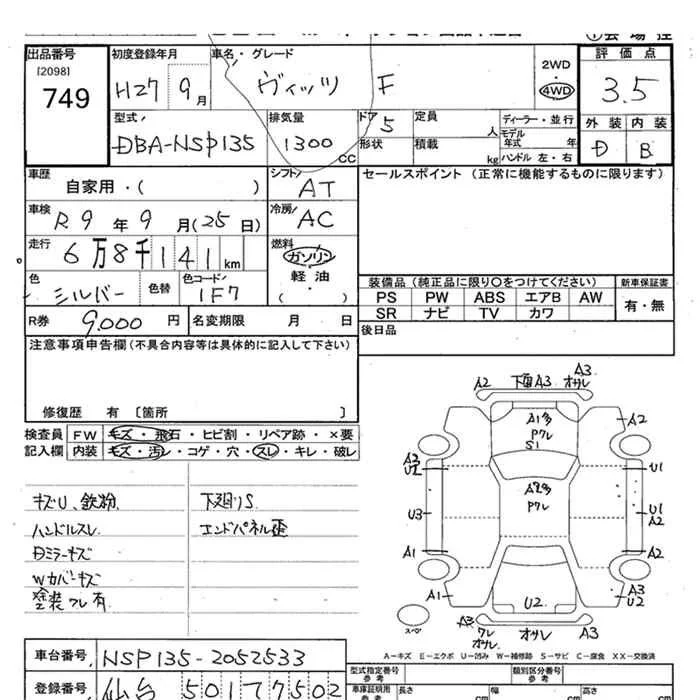 出品番号
[2098]
749
初度登録年月
H27 9月
車名・グレード
ヴィッツ F
2WD
・
4WD
評価点
3.5
外装 内装
D B
型式
DBA-NSP135
排気量
1300 CC
ドア 5
形状
定員 人
積載 kg
ディーラー・並行
モデル年式 年
ハンドル 左・右
車歴
自家用・( )
シフト AT
車検
R9年9月(25日)
冷房 AC
走行
6万8千141km
燃料
ガソリン
・
軽油
( )
色 シルバー
色替
色コード 1F7
R券 9,000円
名変期限 月 日
セールスポイント(正常に機能するものに限ります)
装備品(純正品に限り〇をつけてください)
新車保証書
PS PW ABS エアB AW
SR ナビ TV カワ
有・無
後日品
注意事項申告欄(不具合内容等は具体的に記入して下さい)
修復歴 有 〔箇所 〕
検査員記入欄
FW キズ・飛石・ヒビ割・リペア跡・×要
内装 キズ・汚レ・コゲ・穴・スレ・キレ・破レ
キズU、鉄粉
ハンドルスレ
Dミラーキズ
Wカバーキズ
塗装クレ有
下廻りS
エンドパネル歪
A2 下面A3 オサレ A3
A1多
Pクレ
S1
A2
A3
U2
U1
A2多
Pクレ
U3
U1
A2
A1
A2
A1
U2
A3
U2
スペア
A3
ワレ
オサレ
オサレ
A3
A-キズ E-エクボ U-凹み W-補修跡 S-サビ C-腐食 XX-交換済
車台番号 NSP135-2052533
登録番号 仙台 501 7502
型式指定番号
類別区分番号
車庫証明用参考
長さ cm
幅 cm
高さ cm